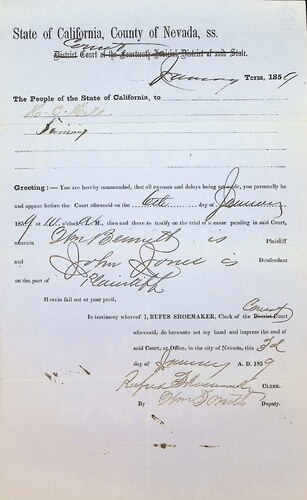 State of California, County of Nevada, ss.
County
District Court of the Fourteenth Judicial District of said State.
January Term, 1859
The People of the State of California, to
Greeting:—You are hereby commanded, that all excuses and delays being set aside, you personally be
and appear before the Court aforesaid on the 6th day of January
1859 at 10 o'clock A.M., then and there to testify on the trial of a cause pending in said Court,
wherein Wm Bennett is Plaintiff
and John Jones is Defendant
on the part of Plaintiff
Herein fail not at your peril,
In testimony whereof I, RUFUS SHOEMAKER, Clerk of the District Court County
aforesaid, do hereunto set my hand and impress the seal of
said Court, at Office, in the city of Nevada, this 3d
day of January A. D. 1859
Rufus Shoemaker CLERK.
By Wm Smith Deputy.